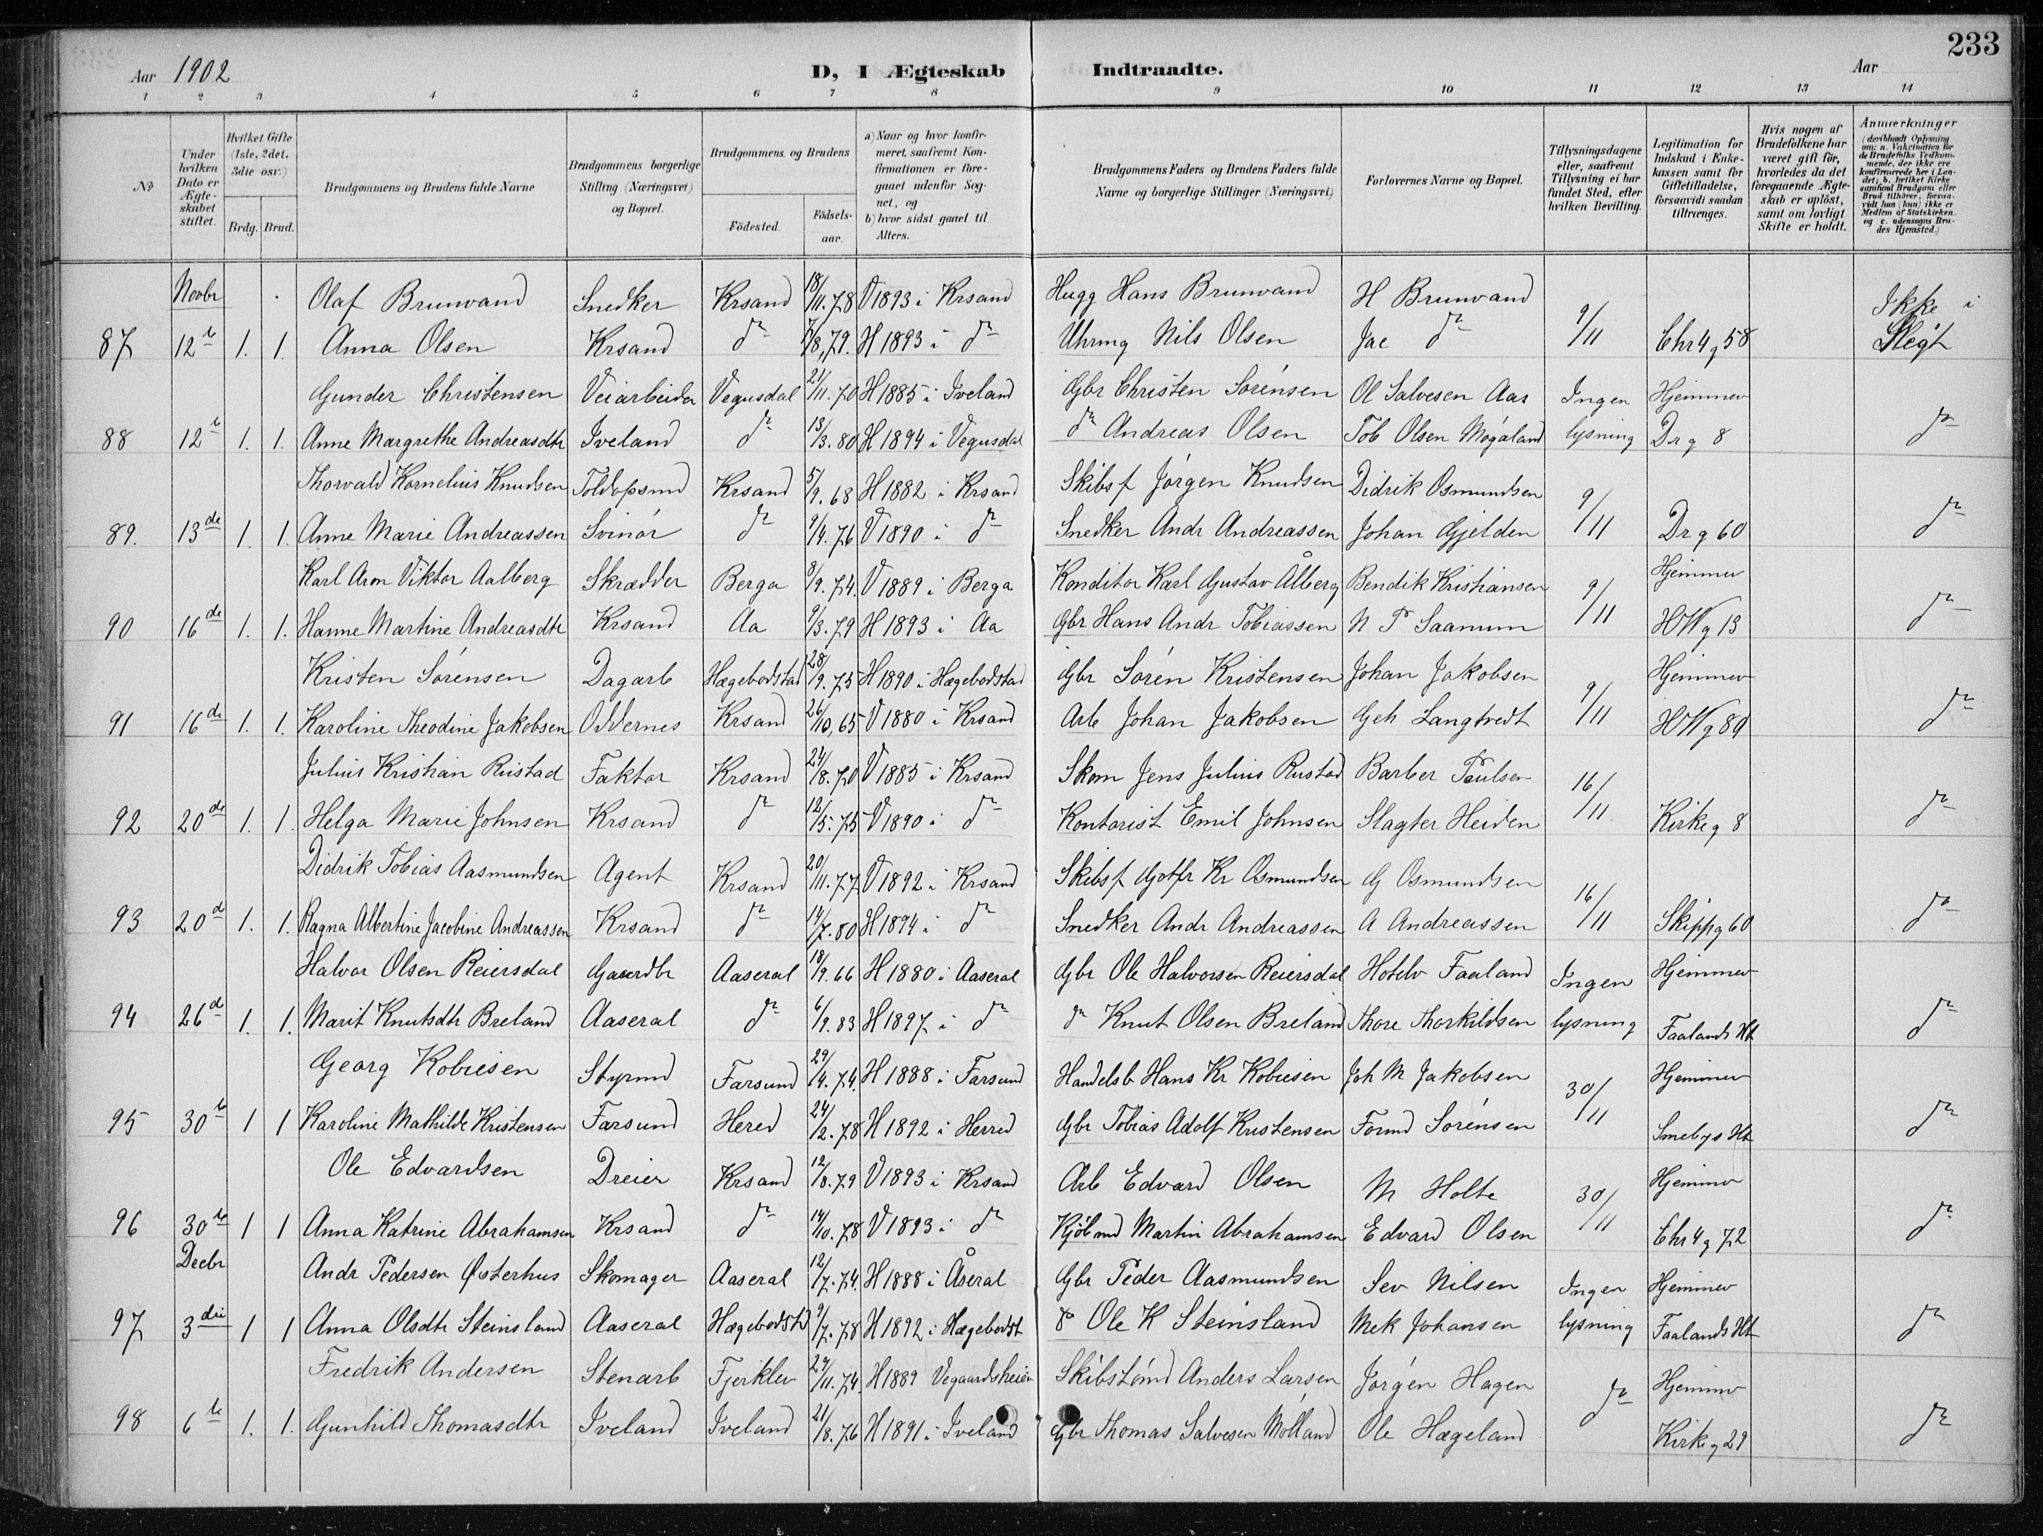 233
Aar 1902
D, I Ægteskab Indtraadte.
Aar
1 2 3 4 5 6 7 8 9 10 11 12 13 14
No
Under hvilken Dato er Ægteskabet stiftet.
Hvilket Gifte (1ste, 2det, 3die osv.)
Brdg. Brud.
Brudgommens og Brudens fulde Navne
Brudgommens borgerlige Stilling (Næringsvei) og Bopæl.
Brudgommens og Brudens
Fødested.
Fødsels-aar.
a) Naar og hvor konfirmeret, saafremt Konfirmationen er foregaaet udenfor Sognet, og
b) hvor sidst gaaet til Alters.
Brudgommens Faders og Brudens Faders fulde Navne og borgerlige Stillinger (Næringsvei)
Forlovernes Navne og Bopæl.
Tillysningsdagene eller, saafremt Tillysning ei har fundet Sted, efter hvilken Bevilling.
Legitimation for Indskud i Enkekassen samt for Giftetilladelse, forsaavidt saadan tiltrænges.
Hvis nogen af Brudefolkene har været gift før, hvorledes da det foregaaende Ægteskab er opløst, samt om lovligt Skifte er holdt.
Anmærkninger
Novbr Olaf Brunvand Snedker Krsand 18/11.78 V 1893 i Krsand Hugg Hans Brunvand H Brunvand Ikke i
87 12te 1. 1. Anna Olsen Krsand do 7/8.79. H 1893 i do Uhrmg Nils Olsen Jac do 9/11 Chr4g58 Slegt
Gunder Christensen Veiarbeider Vegusdal 21/11.70 H 1885 i Iveland Gbr Christen Sørensen Ol Salvesen Aas Ingen Hjemmev
88 12te 1. 1. Anne Margrethe Andreasdtr Iveland do 13/3.80 H 1894 i Vegusdal do Andreas Olsen Tob Olsen Møgaland lysning Dr g 8 do
Thorvald Kornelius Knudsen Toldopsmd Krsand 5/9.68 H 1882 i Krsand Skibsf Jørgen Knudsen Didrik Osmundsen
89. 13de 1. 1. Anne Marie Andreassen Svinør do 9/4.76 V 1890 i do Snedker Andr Andreassen Johan Gjelden 9/11 Dr g 60 do
Karl Aron Viktor Aalberg Skrædder Berga 8/9.74. V 1889 i Berga Konditor Karl Gustav Ålberg Bendik Kristiansen Hjemmev
90 16de 1. 1. Hanne Martine Andreasdtr Krsand Aa 9/3.79 H 1893 i Aa Gbr Hans Andr Tobiassen N P Saanum 9/11 HWg13 do
Kristen Sørensen Dagarb Hægebodstad 28/9.75 H 1890 i Hægebodstad Gbr Søren Kristensen Johan Jakobsen Hjemmev
91 16de 1. 1. Karoline Theodine Jakobsen Oddernes Krsand 26/10,65 V 1880 i Krsand Arb Johan Jakobsen Geh Langtvedt 9/11 HWg89 do
Julius Kristian Rustad Faktor Krsand 24/8.70 V 1885 i Krsand Skom Jens Julius Rustad Barber Paulsen
92 20de 1. 1. Helga Marie Johnsen Krsand do 12/5.75 V 1890 i do Kontorist Emil Johnsen Slagter Heiden 16/11. Kirkeg 8 do
Didrik Tobias Aasmundsen Agent Krsand 20/11.77 V 1892 i Krsand Skibsf Gotfr Kr Osmundsen G Osmundsen
93 20d 1. 1. Ragna Albertine Jacobine Andreassen Krsand do 14/7.80 H 1894 i do Snedker Andr Andreassen A Andreassen 16/11 Skippg60 do
Halvor Olsen Reiersdal Gaardbr Aaseral 18/9.66 H 1880 i Aaseral Gbr Ole Halvorsen Reiersdal Hotelv Faaland Ingen Hjemmev
94 26d 1. 1. Marit Knutsdtr Breland Aaseral do 6/9.83 H 1897 i do do Knut Olsen Breland Thore Thorkildsen lysning Faalands Ht do
Georg Kobiesen Styrmd Farsund 29/4.74. H 1888 i Farsund Handelsb Hans Kr Kobiesen Joh M Jakobsen Hjemmev
95 30te 1 1 Karoline Mathilde Kristensen Farsund Hered 24/2.78 H 1892 i Herred Gbr Tobias Adolf Kristensen Formd Sørensen 30/11 Smebys Ht do
Ole Edvardsen Dreier Krsand 12/8.79 V 1893 i Krsand Arb Edvard Olsen M Holte Hjemmev
96 30te 1 1 Anna Katrine Abrahamsen Krsand do 14/10.78 V 1893 i do Kjøbmd Martin Abrahamsen Edvard Olsen 30/11 Chr4g72 do
Decbr Andr Pedersen Østerhus Skomager Aaseral 12/7.74. H 1888 i Åseral Gbr Peder Aasmundsen Sev Nilsen Ingen Hjemmev
97 3die 1 1 Anna Olsdtr Steinsland Aaseral Hægebodstd 9/7.78 H 1892 i Hægebodst do Ole K Steinsland Mek Johansen lysning Faalands Ht do
Fredrik Andersen Stenarb Fjerklev 24/11.74. H 1889 Vegaardsheien Skibstømd Anders Larsen Jørgen Hagen Hjemmev
98 6te 1. 1. Gunhild Thomasdtr Iveland Iveland 21/8.76 H 1891 i Iveland Gbr Thomas Salvesen Mølland Ole Hægeland do Kirkeg29 do